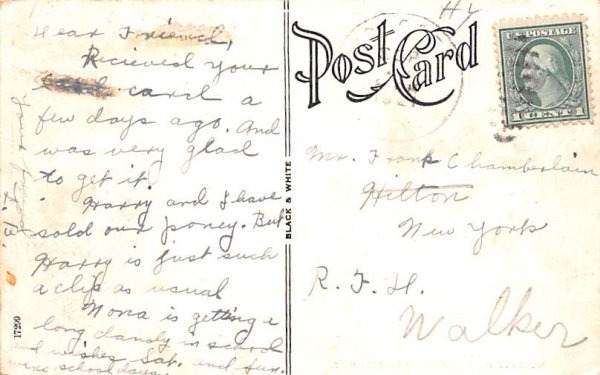 Dear Friend,
Recieved your
card a
few days ago. And
was very glad
to get it.
Harry and I have
sold our poney. But
Harry is just such
a clip as usual
Nona is getting a
long dandy in school
and wishes Sat. and Sun.
were school days.
your friend
17299
BLACK & WHITE
Post Card
U.S. POSTAGE
1 CENT 1
Mr. Frank Chamberlain
Hilton
New York
R. F. H.
Walker